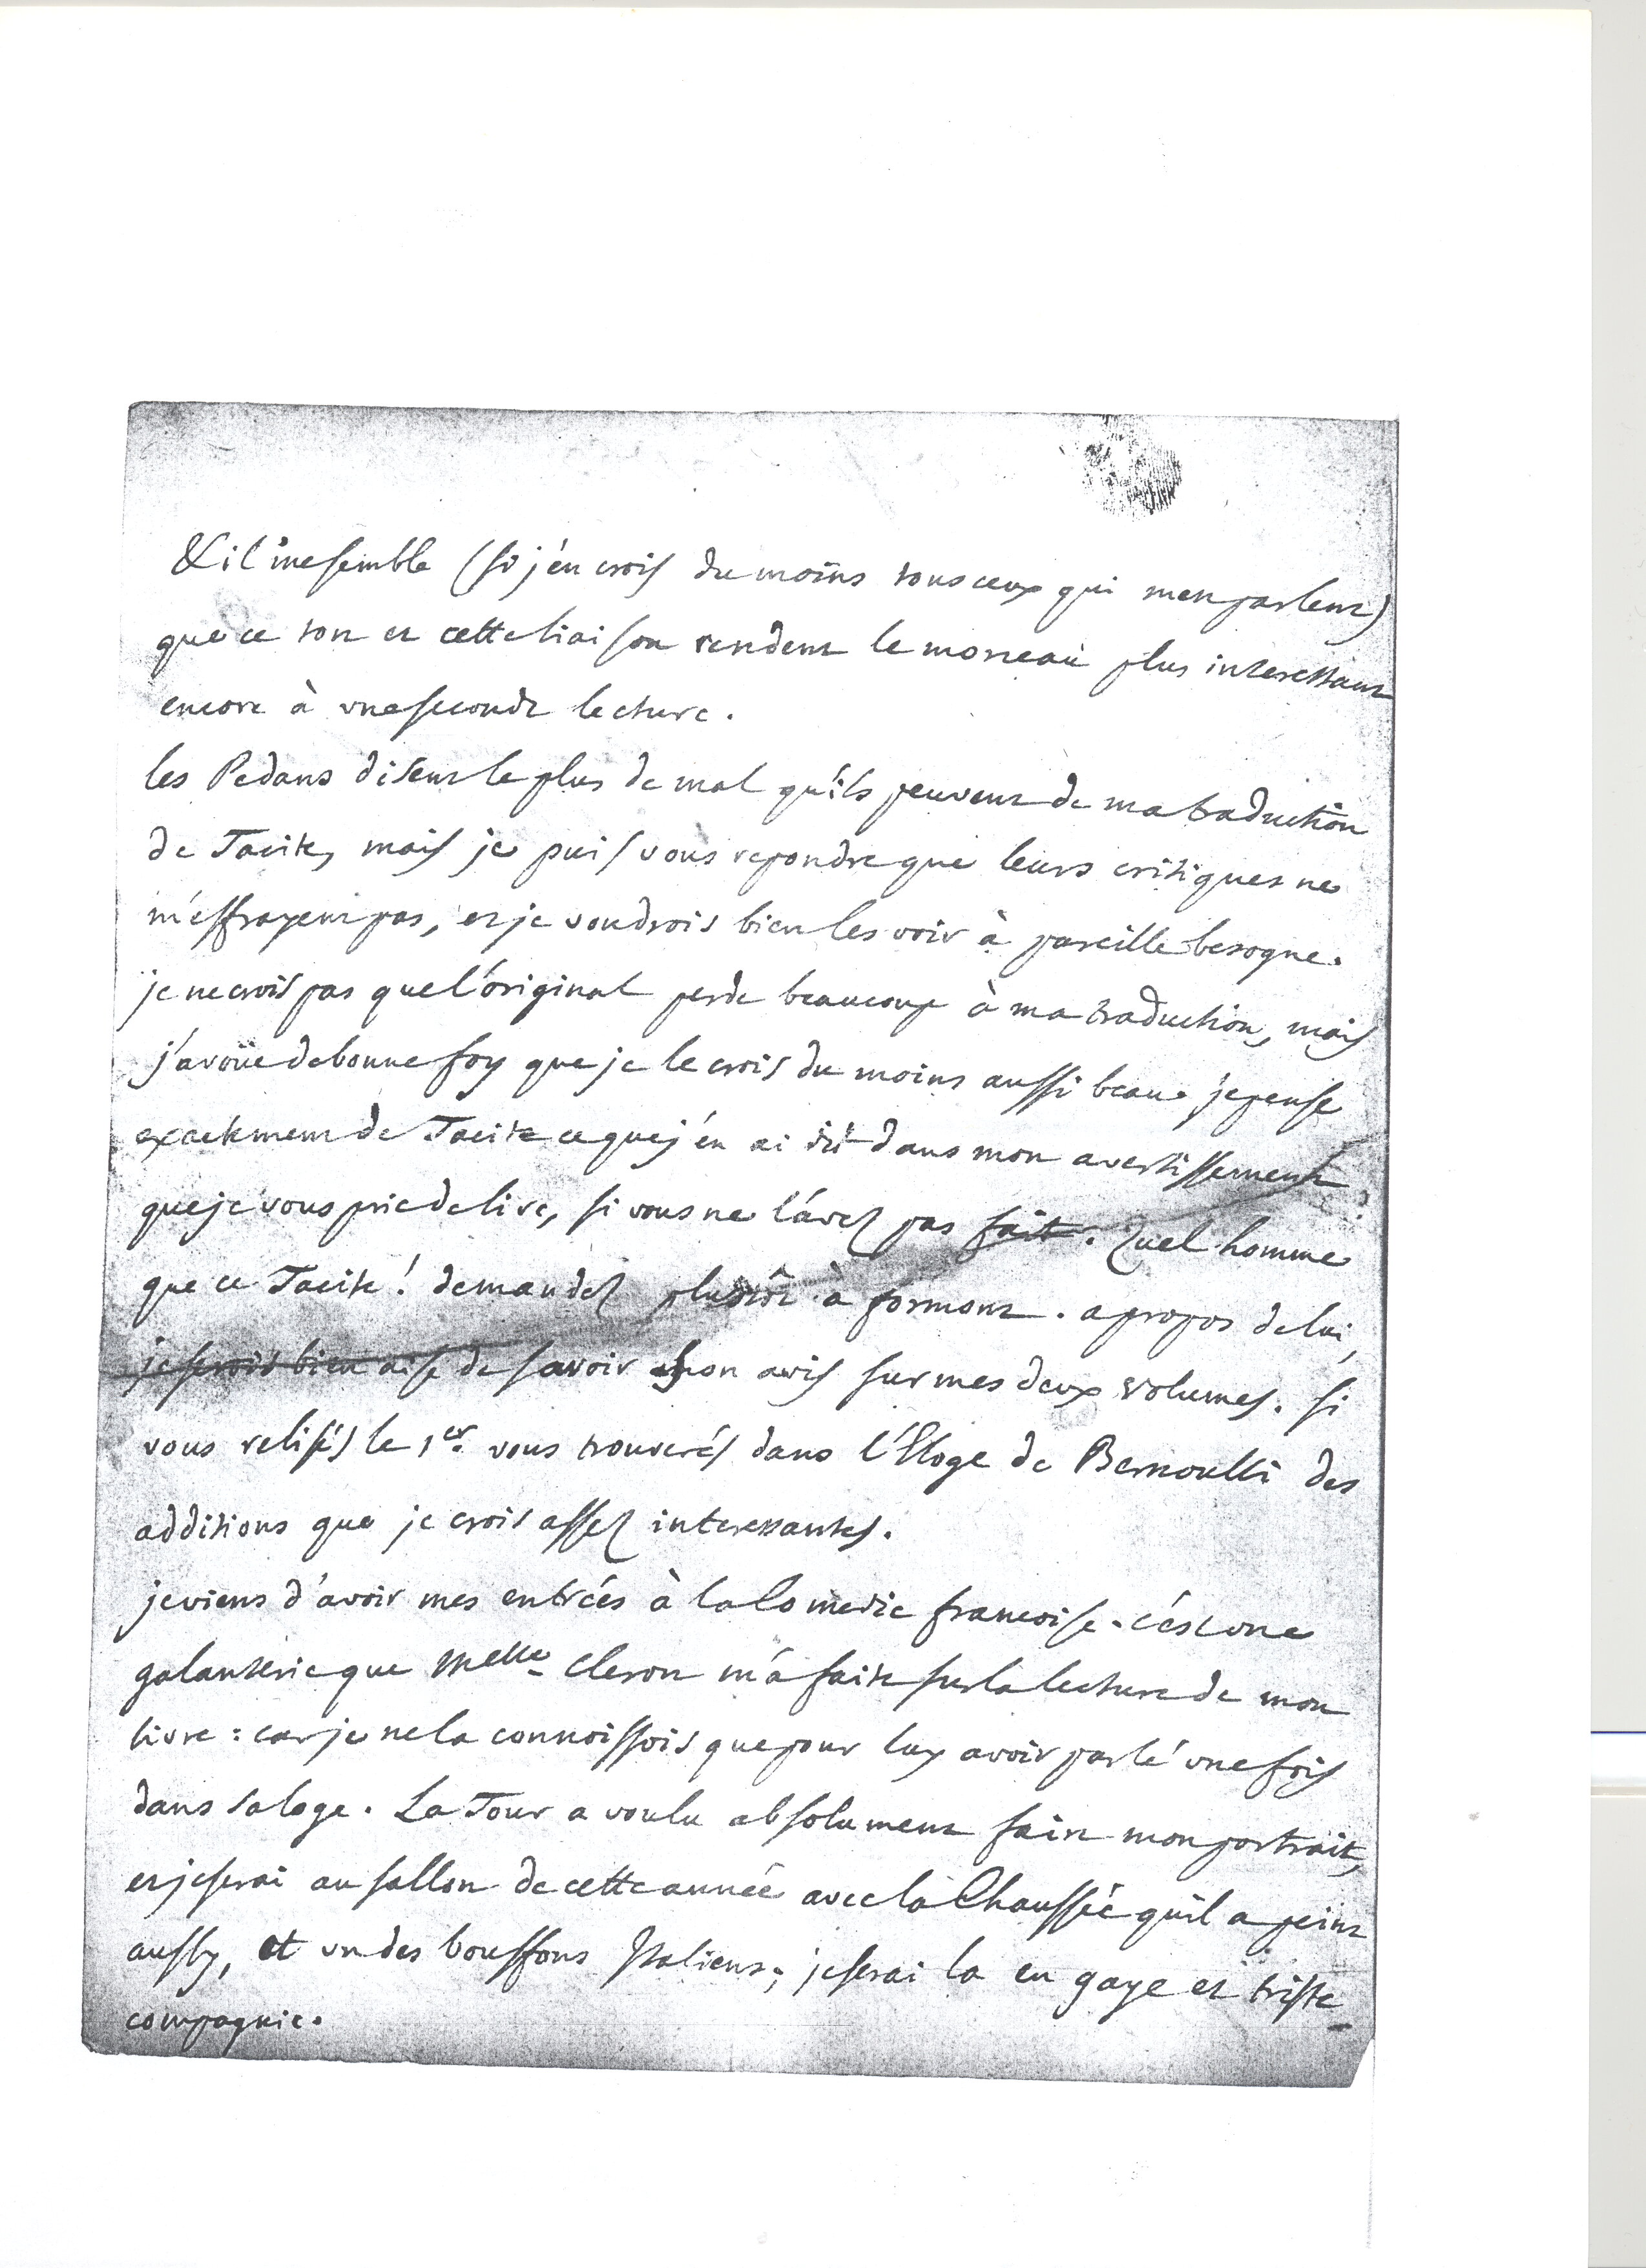 & il me semble (si j'en crois du moins tous ceux qui m'en parlent)
que ce ton et cette liaison rendent le morceau plus interessant
encore à une seconde lecture.
les Pedans disent le plus de mal qu'ils peuvent de ma traduction
de Tacite, mais je puis vous repondre que leurs critiques ne
m'effrayent pas, et je voudrois bien les voir à pareille besogne.
je ne crois pas que l'original perde beaucoup à ma traduction, mais
j'avoüe de bonne foy que je le crois du moins aussi beau. je pense
exactement de Tacite ce que j'en ai dit dans mon avertissement
que je vous prie de lire, si vous ne l'avez pas fait. Quel homme
que ce Tacite! demandez plustôt à formont. a propos de lui,
je serois bien aise de savoir son avis sur mes deux volumes. si
vous relisés le 1er. vous trouverés dans l'Eloge de Bernoulli des
additions que je crois assez interessantes.
je viens d'avoir mes entrées à la Comedie francoise. c'est une
galanterie que Melle Cleron m'a faite sur la lecture de mon
livre: car je ne la connoissois que pour luy avoir parlé une fois
dans sa loge. La Tour a voulu absolument faire mon portrait,
et je serai au sallon de cette année avec la Chaussée qu'il a peint
aussy, et un des bouffons Italiens; je serai la en gaye et triste
compagnie.